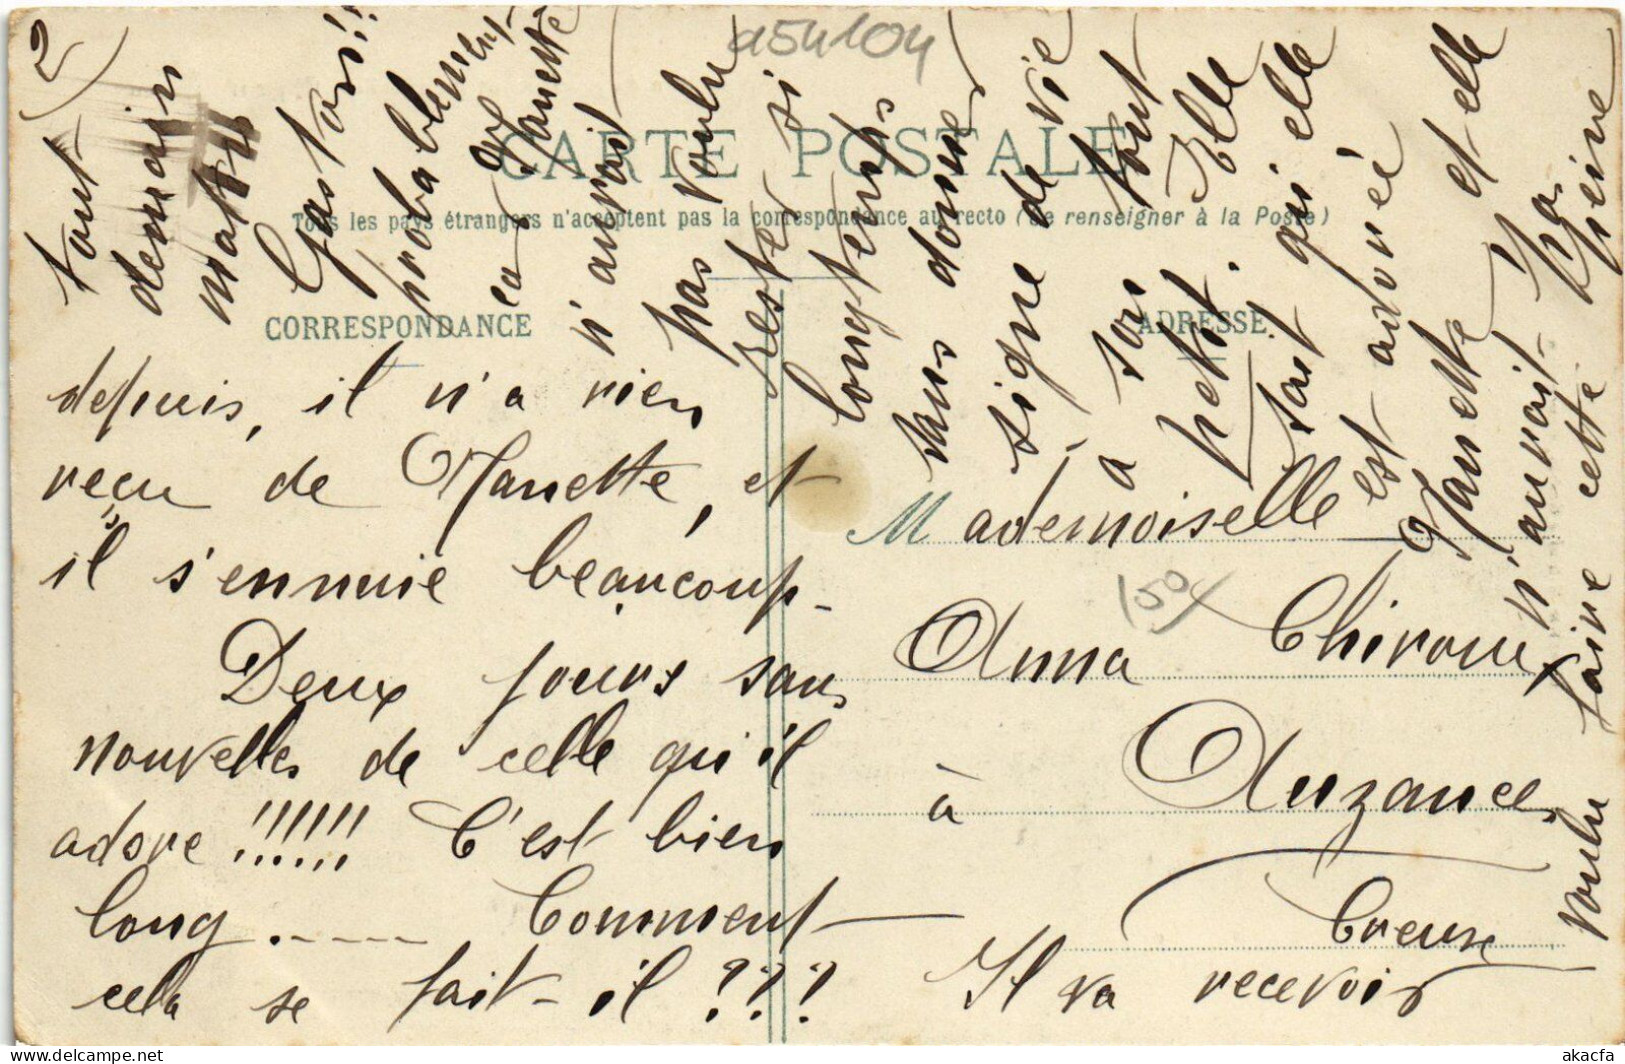 2)
a54104
CARTE POSTALE
Tous les pays étrangers n'acceptent pas la correspondance au recto (se renseigner à la Poste)
CORRESPONDANCE
ADRESSE
depuis, il n'a rien
reçu de Manette, et
il s'ennuie beaucoup -
Deux jours sans
nouvelles de celle qu'il
adore !!!!!! C'est bien
long . - - - - Comment
cela se fait - il ???
Mademoiselle
Anna Chiroux
à Auzances
Creuse
150
Il va recevoir
tout
demain
matin
Gaston !!
probablement
car Manette
n'aurait
pas voulu
rester si
longtemps
sans donner
signe de vie
à son tout
petit. Elle
sait qu'elle
est adorée
Manette et elle
n'aurait pas
voulu faire cette peine
akacfa